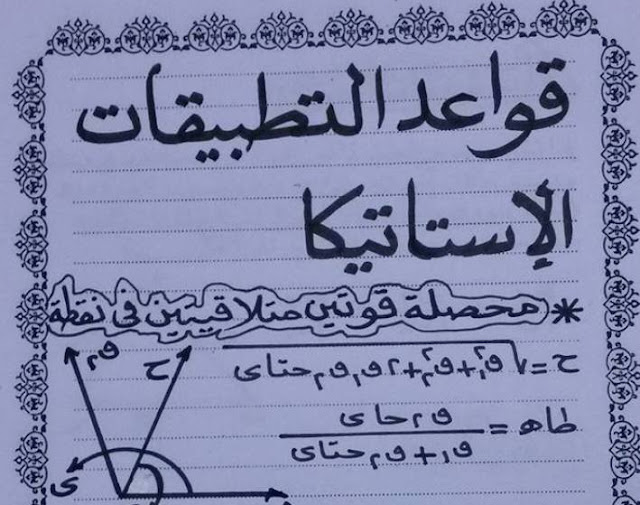 قواعد التطبيقات
الإستاتيكا
* محصلة قوتين متلاقيتين فى نقطة
ح = √ق₁² + ق₂² + ٢ق₁ق₂حتاى
طاهـ = ق₂حاى / ق₁ + ق₂حتاى
ق₂
ح
ى